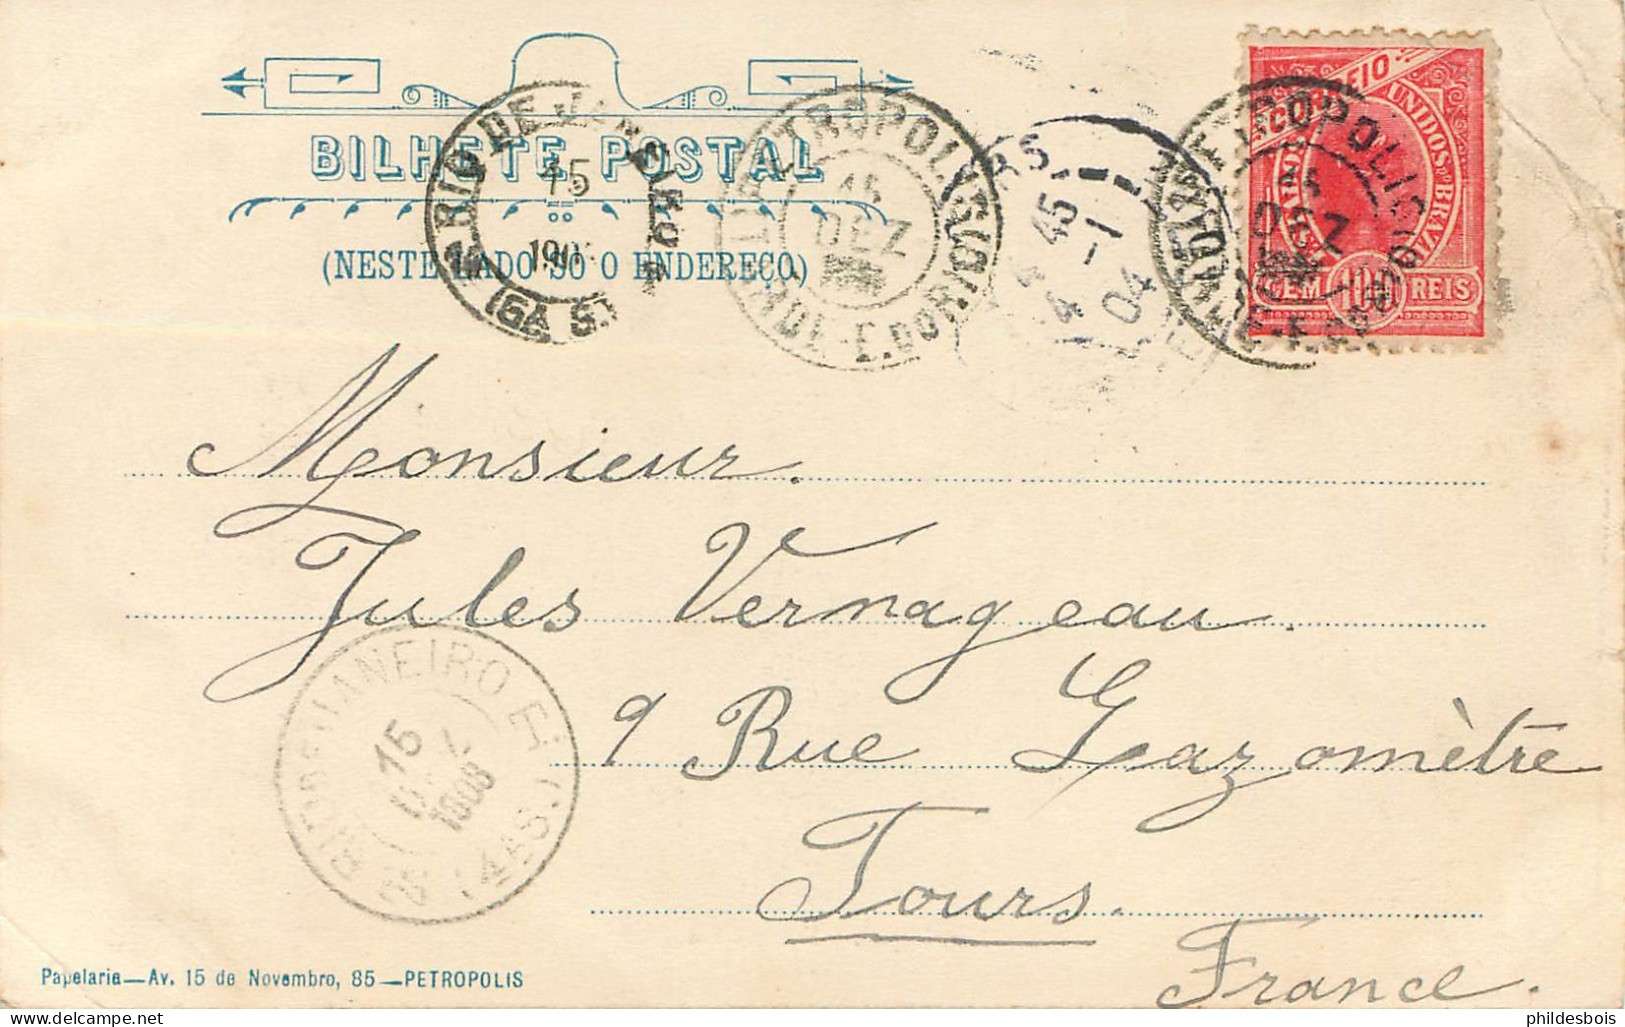 BILHETE POSTAL
(NESTE LADO SÓ O ENDEREÇO)
RIO DE JANEIRO
15
(6A S.)
PETROPOLIS
15
DEZ
E. DO RIO
45
-1
04
CORREIO
UNIDOS DO BRAZIL
CEM 100 REIS
PETROPOLIS
DEZ
Monsieur.
Jules Vernageau.
9 Rue Gazomètre
Tours.
France.
RIO DE JANEIRO
15
(4A S.)
Papelaria—Av. 15 de Novembro, 85—PETROPOLIS
phildesbois